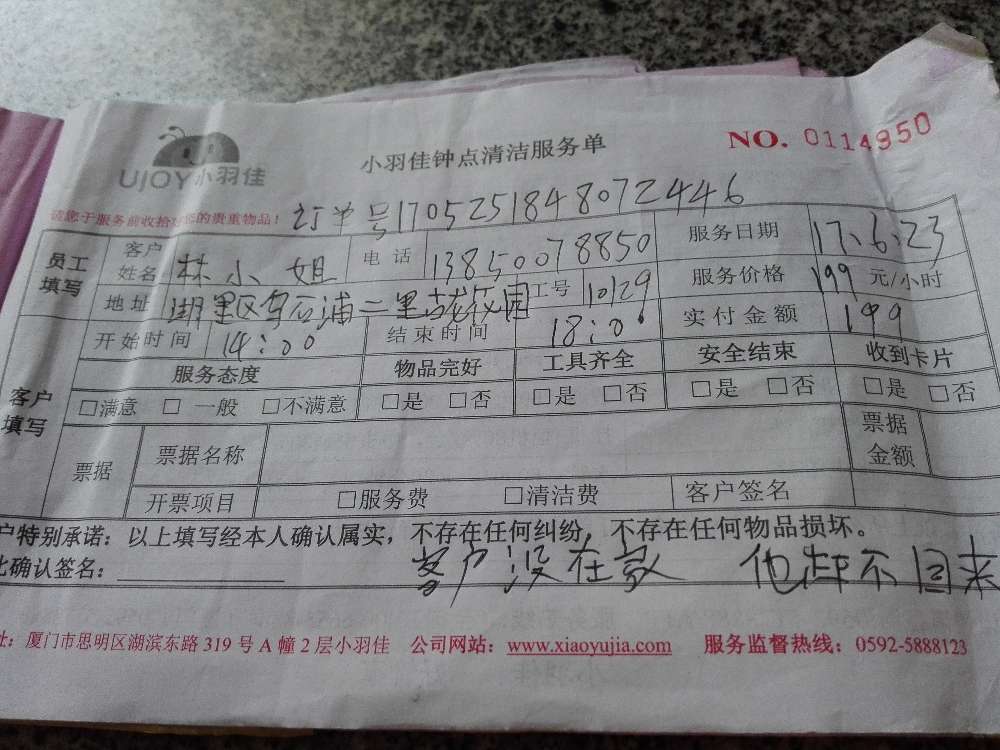 UJOY小羽佳
小羽佳钟点清洁服务单
NO. 0114950
请您于服务前收拾好您的贵重物品!
订单号170525184807244 6
员工填写 客户姓名 林小姐 电话 13850078850 服务日期 17.6.23
地址 湖里区 石浦二里 园 工号 10129 服务价格 199 元/小时
开始时间 14:00 结束时间 18:00 实付金额 199
客户填写 服务态度 物品完好 工具齐全 安全结束 收到卡片
□满意 □一般 □不满意 □是 □否 □是 □否 □是 □否 □是 □否
票据 票据名称 票据金额
开票项目 □服务费 □清洁费 客户签名
户特别承诺:以上填写经本人确认属实,不存在任何纠纷,不存在任何物品损坏。
比确认签名:
客户没在家 他赶不回来
址:厦门市思明区湖滨东路319号A幢2层小羽佳 公司网站:www.xiaoyujia.com 服务监督热线:0592-5888123